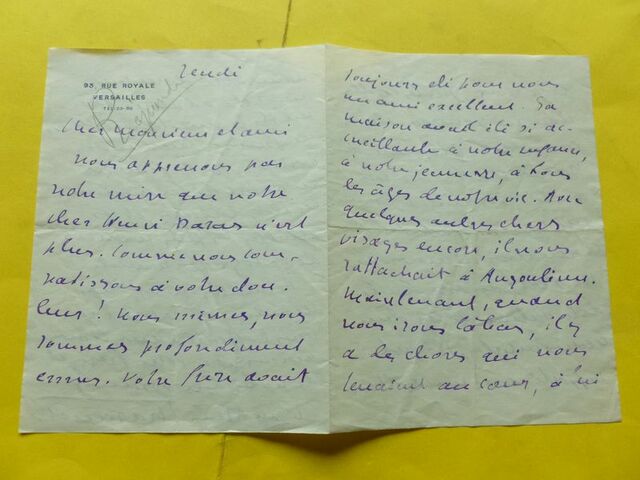 Jeudi
93, RUE ROYALE
VERSAILLES
Cher monsieur et ami
nous apprenons par
notre mère que votre
cher Henri n'est
plus. Comme nous com-
patissons à votre dou-
leur ! Nous mêmes, nous
sommes profondément
émus. Votre frère avait
toujours été pour nous
un ami excellent. Sa
maison avait été si ac-
cueillante à notre enfance,
à notre jeunesse, à tous
les âges de notre vie. Avec
quelques autres chers
visages encore, il nous
rattachait à Angoulême.
Maintenant, quand
nous irons là-bas, il y
a les choses qui nous
tenaient au cœur, à lui